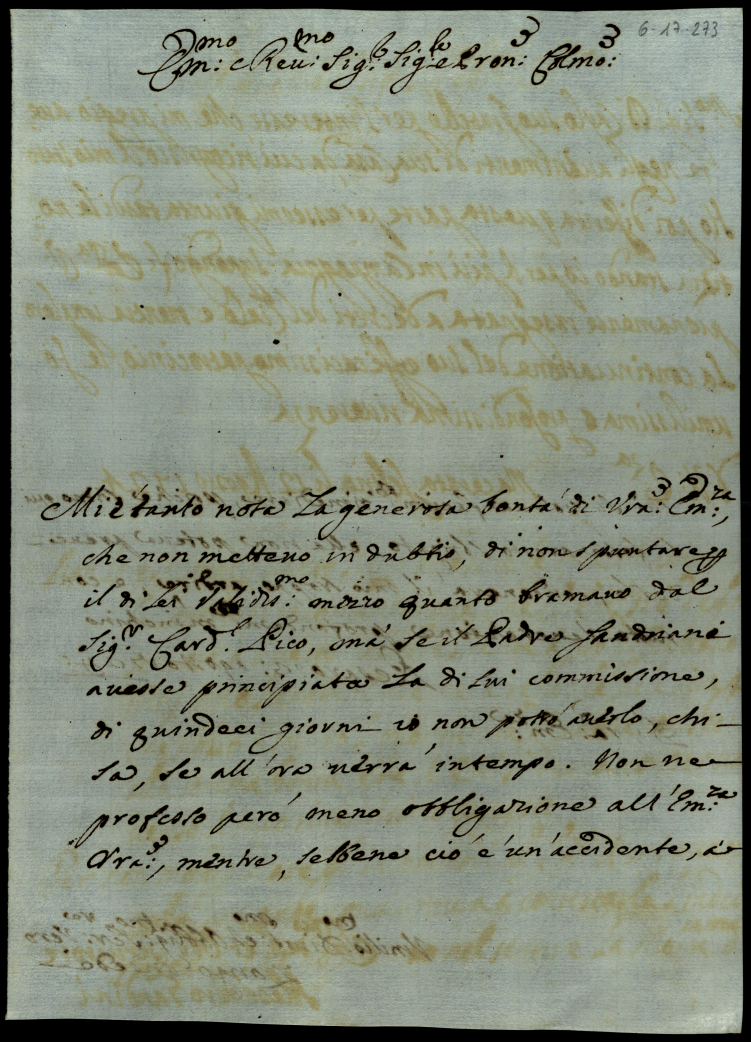 6-17-273
Em:mo e Reu:mo Sig:r Sig:r e Pron: Colmo:
Mi é tanto nota la generosa bontá di Vra: Em:za,
che non metteuo in dubbio, di non spuntare p
il di Lei mezzo quanto bramauo dal
Sig:r Card:l Pico, má se il Padre Sandriani
auesse principiata la di lui commissione,
di quindeci giorni io non potró auerlo, chi
sa, se all'ora uerrá in tempo. Non ne
professo peró meno obbligazione all'Em:za
Vra:, mentre, sebene ció é un'accidente, á